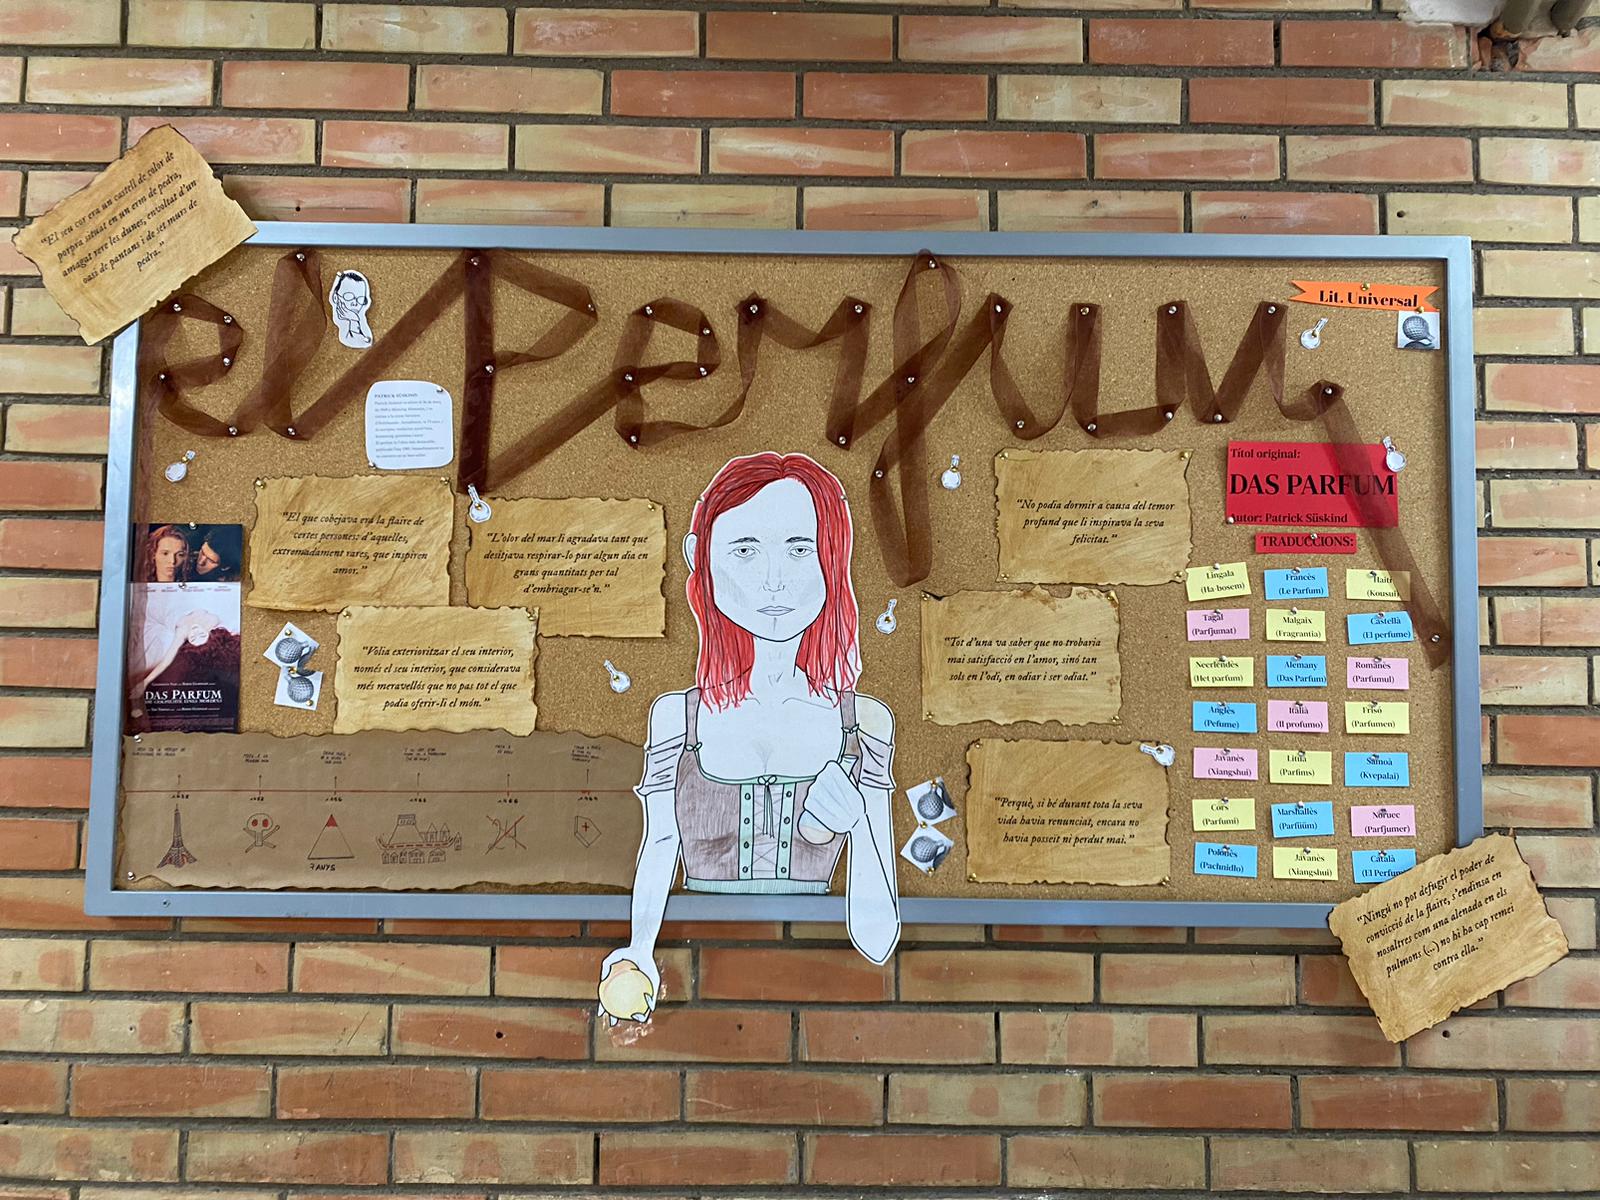 "El seu cor era un castell de color de
porpra situat en un erm de pedra,
amagat rere les dunes, envoltat d'un
oasi de pantans i de set murs de
pedra."
el Perfum,
Lit. Universal
PATRICK SÜSKIND
"El que cobejava era la flaire de
certes persones: d'aquelles,
extremadament rares, que inspiren
amor."
"L'olor del mar li agradava tant que
desitjava respirar-lo pur algun dia en
grans quantitats per tal
d'embriagar-se'n."
"Volia exterioritzar el seu interior,
només el seu interior, que considerava
més meravellós que no pas tot el que
podia oferir-li el món."
DAS PARFUM
1738
7 ANYS
"No podia dormir a causa del temor
profund que li inspirava la seva
felicitat."
"Tot d'una va saber que no trobaria
mai satisfacció en l'amor, sinó tan
sols en l'odi, en odiar i ser odiat."
"Perquè, si bé durant tota la seva
vida havia renunciat, encara no
havia posseït ni perdut mai."
Títol original:
DAS PARFUM
Autor: Patrick Süskind
TRADUCCIONS:
Lingala
(Ha-bosem)
Francès
(Le Parfum)
Haití
(Kousui
Tagal
(Parfjumat)
Malgaix
(Fragrantia)
Castellà
(El perfume)
Neerlendès
(Het parfum)
Alemany
(Das Parfum)
Romanès
(Parfumul)
Anglès
(Pefume)
Italià
(Il profumo)
Frisó
(Parfumen)
Javanès
(Xiangshui)
Lituà
(Parfims)
Samoà
(Kvepalai)
Cors
(Parfumi)
Marshallès
(Parfüüm)
Noruec
(Parfjumer)
Polonès
(Pachnidło)
Javanès
(Xiangshui)
Català
(El Perfum
"Ningú no pot defugir el poder de
convicció de la flaire, s'endinsa en
nosaltres com una alenada en els
pulmons (...) no hi ha cap remei
contra ella."